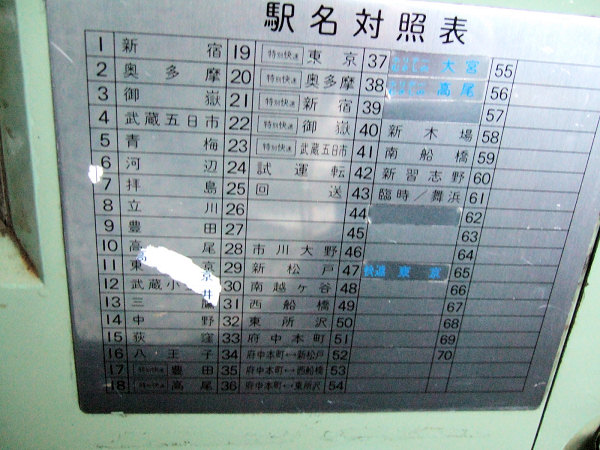 駅名対照表
1 新宿 19 特別快速 東京 37 大宮 55
2 奥多摩 20 特別快速 奥多摩 38 高尾 56
3 御嶽 21 特別快速 新宿 39 57
4 武蔵五日市 22 特別快速 御嶽 40 新木場 58
5 青梅 23 特別快速 武蔵五日市 41 南船橋 59
6 河辺 24 試運転 42 新習志野 60
7 拝島 25 回送 43 臨時/舞浜 61
8 立川 26 44 62
9 豊田 27 45 63
10 高尾 28 市川大野 46 64
11 東京 29 新松戸 47 快速 東京 65
12 武蔵小 井 30 南越ヶ谷 48 66
13 三鷹 31 西船橋 49 67
14 中野 32 東所沢 50 68
15 荻窪 33 府中本町 51 69
16 八王子 34 府中本町↔新松戸 52 70
17 特別快速 豊田 35 府中本町↔西船橋 53
18 特別快速 高尾 36 府中本町↔東所沢 54